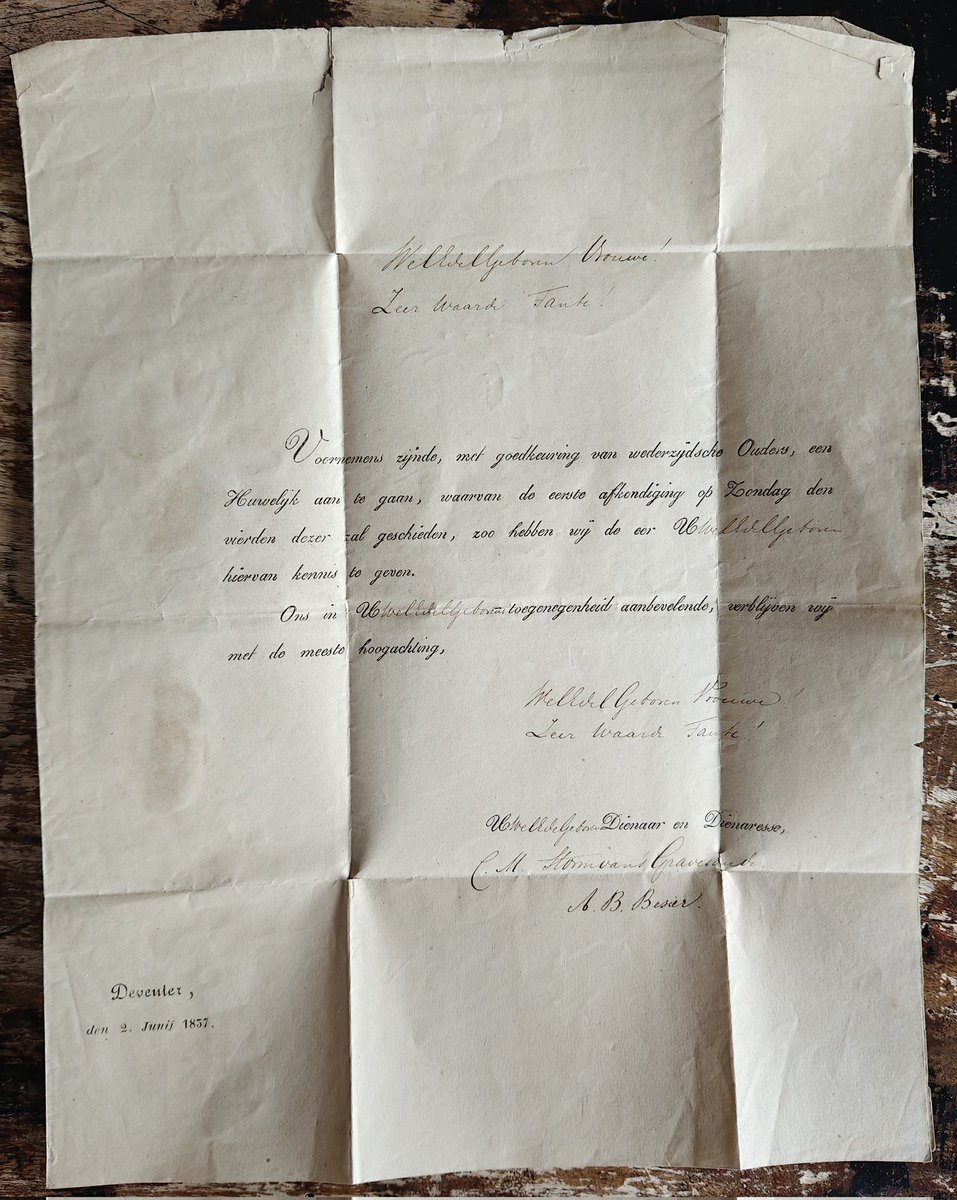 WelEdelGeboren Vrouwe!
Zeer Waarde Tante!
Voornemens zijnde, met goedkeuring van wederzijdsche Ouders, een
Huwelijk aan te gaan, waarvan de eerste afkondiging op Zondag den
vierden dezer zal geschieden, zoo hebben wij de eer UWelEdelGeboren
hiervan kennis te geven.
Ons in UWelEdelGeborens=toegenegenheid aanbevelende, verblijven wij
met de meeste hoogachting,
WelEdelGeboren Vrouwe!
Zeer Waarde Tante!
UWelEdelGeboren Dienaar en Dienaresse,
C. M. Storm van s Gravesande
A. B. Besier.
Deventer,
den 2. Junij 1837.